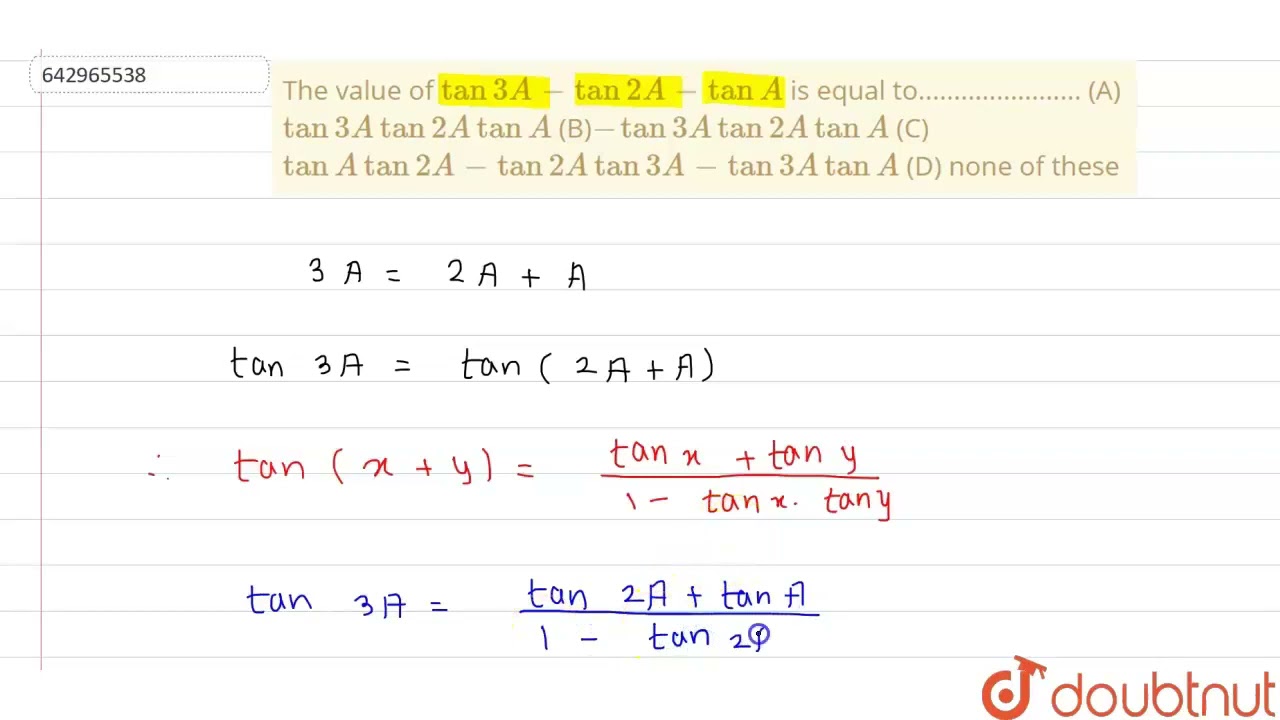 642965538
The value of tan 3A − tan 2A − tan A is equal to....................... (A)
tan 3A tan 2A tan A (B)− tan 3A tan 2A tan A (C)
tan A tan 2A − tan 2A tan 3A − tan 3A tan A (D) none of these
3 A = 2 A + A
tan 3A = tan ( 2A + A )
∴ tan ( x + y ) = tan x + tan y
1 − tan x . tan y
tan 3A = tan 2A + tan A
1 − tan 2
doubtnut